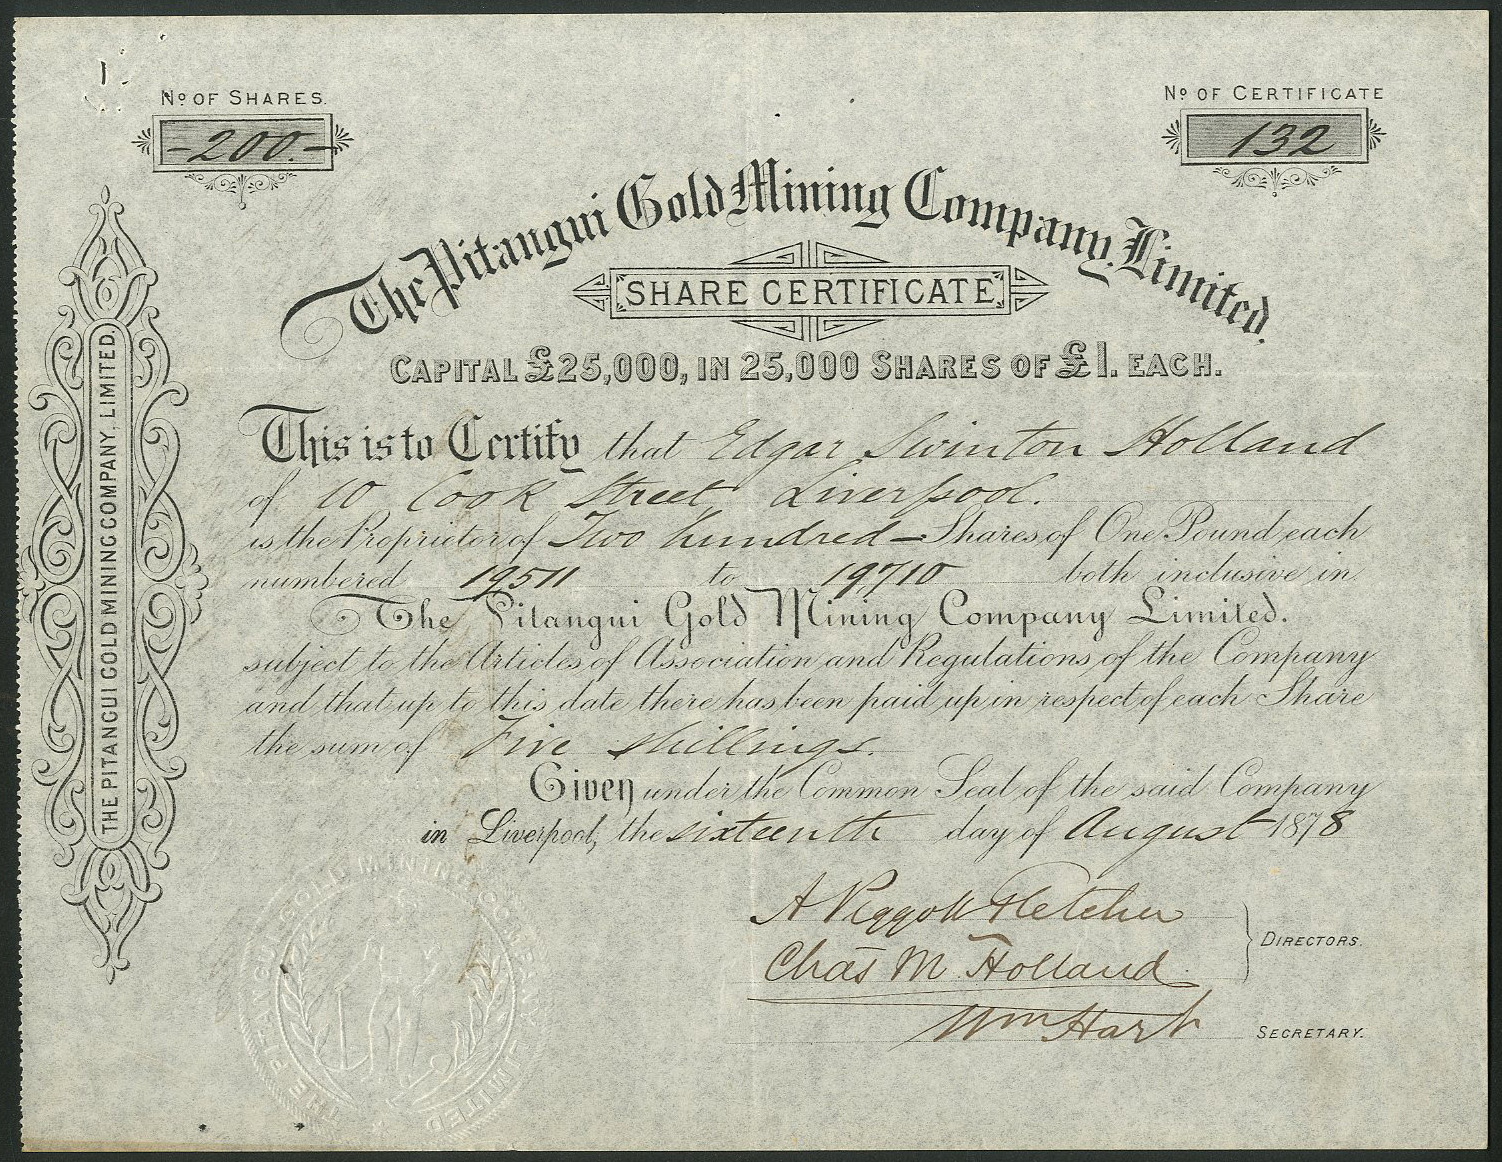 Nº OF SHARES.
-200.-
Nº OF CERTIFICATE
132
The Pitangui Gold Mining Company, Limited.
SHARE CERTIFICATE
CAPITAL £25,000, IN 25,000 SHARES OF £1. EACH.
This is to Certify that Edgar Swinton Holland
of 10 Cook Street, Liverpool.
is the Proprietor of Two hundred — Shares of One Pound each
numbered 19511 to 19710 both inclusive in
The Pitangui Gold Mining Company Limited.
subject to the Articles of Association and Regulations of the Company
and that up to this date there has been paid up in respect of each Share
the sum of Five shillings.
Given under the Common Seal of the said Company
in Liverpool, the sixteenth day of August 1878
A Piggott Fletcher
Chas M Holland
DIRECTORS.
Wm Hart
SECRETARY.
THE PITANGUI GOLD MINING COMPANY, LIMITED.
THE PITANGUI GOLD MINING COMPANY LIMITED